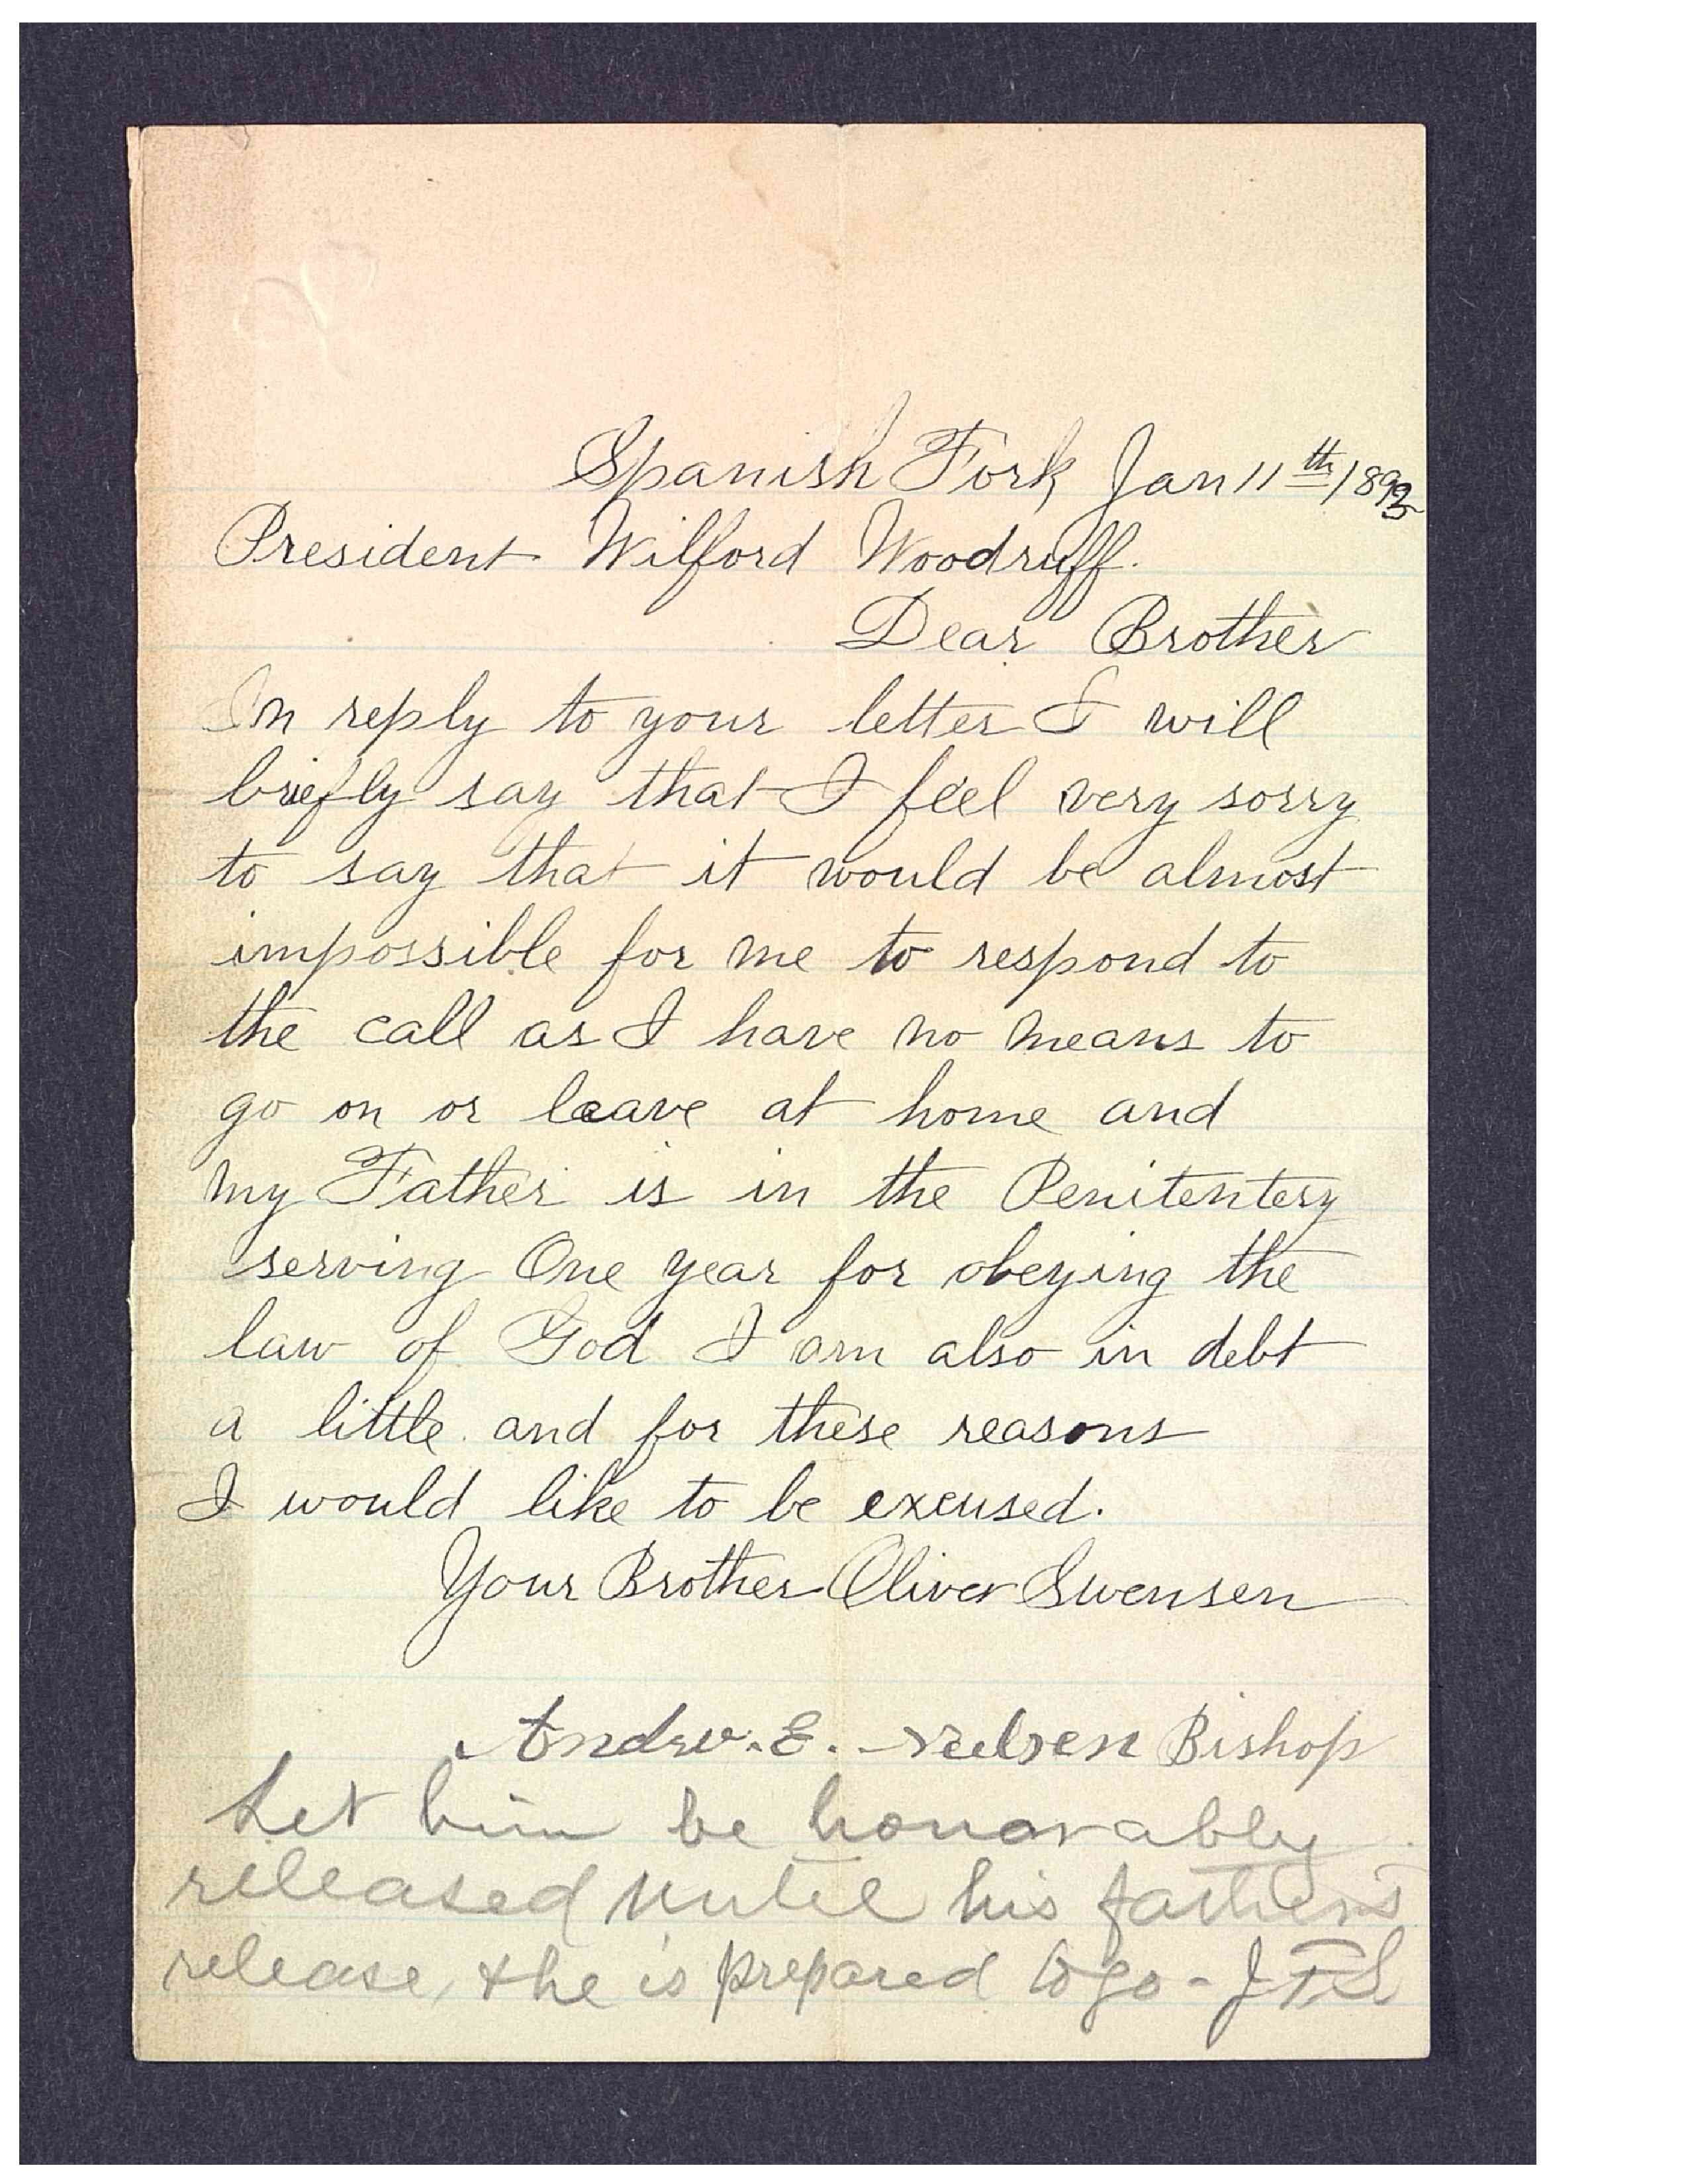 Spanish Fork Jan 11th 1893
President Wilford Woodruff.
Dear Brother
In reply to your letter I will
briefly say that I feel very sorry
to say that it would be almost
impossible for me to respond to
the call as I have no means to
go on or leave at home and
my Father is in the Penitentery
serving One year for obeying the
law of God I am also in debt
a little and for these reasons
I would like to be excused.
Your Brother Oliver Swensen
Andrw. E. Neilsen Bishop
Let him be honorably
released until his father's
release, & he is prepared to go - J F S